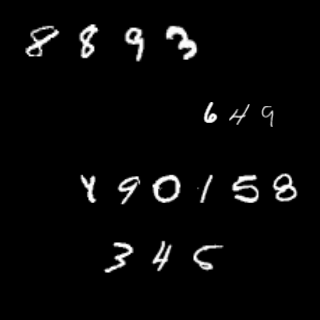 8893
649
490158
345